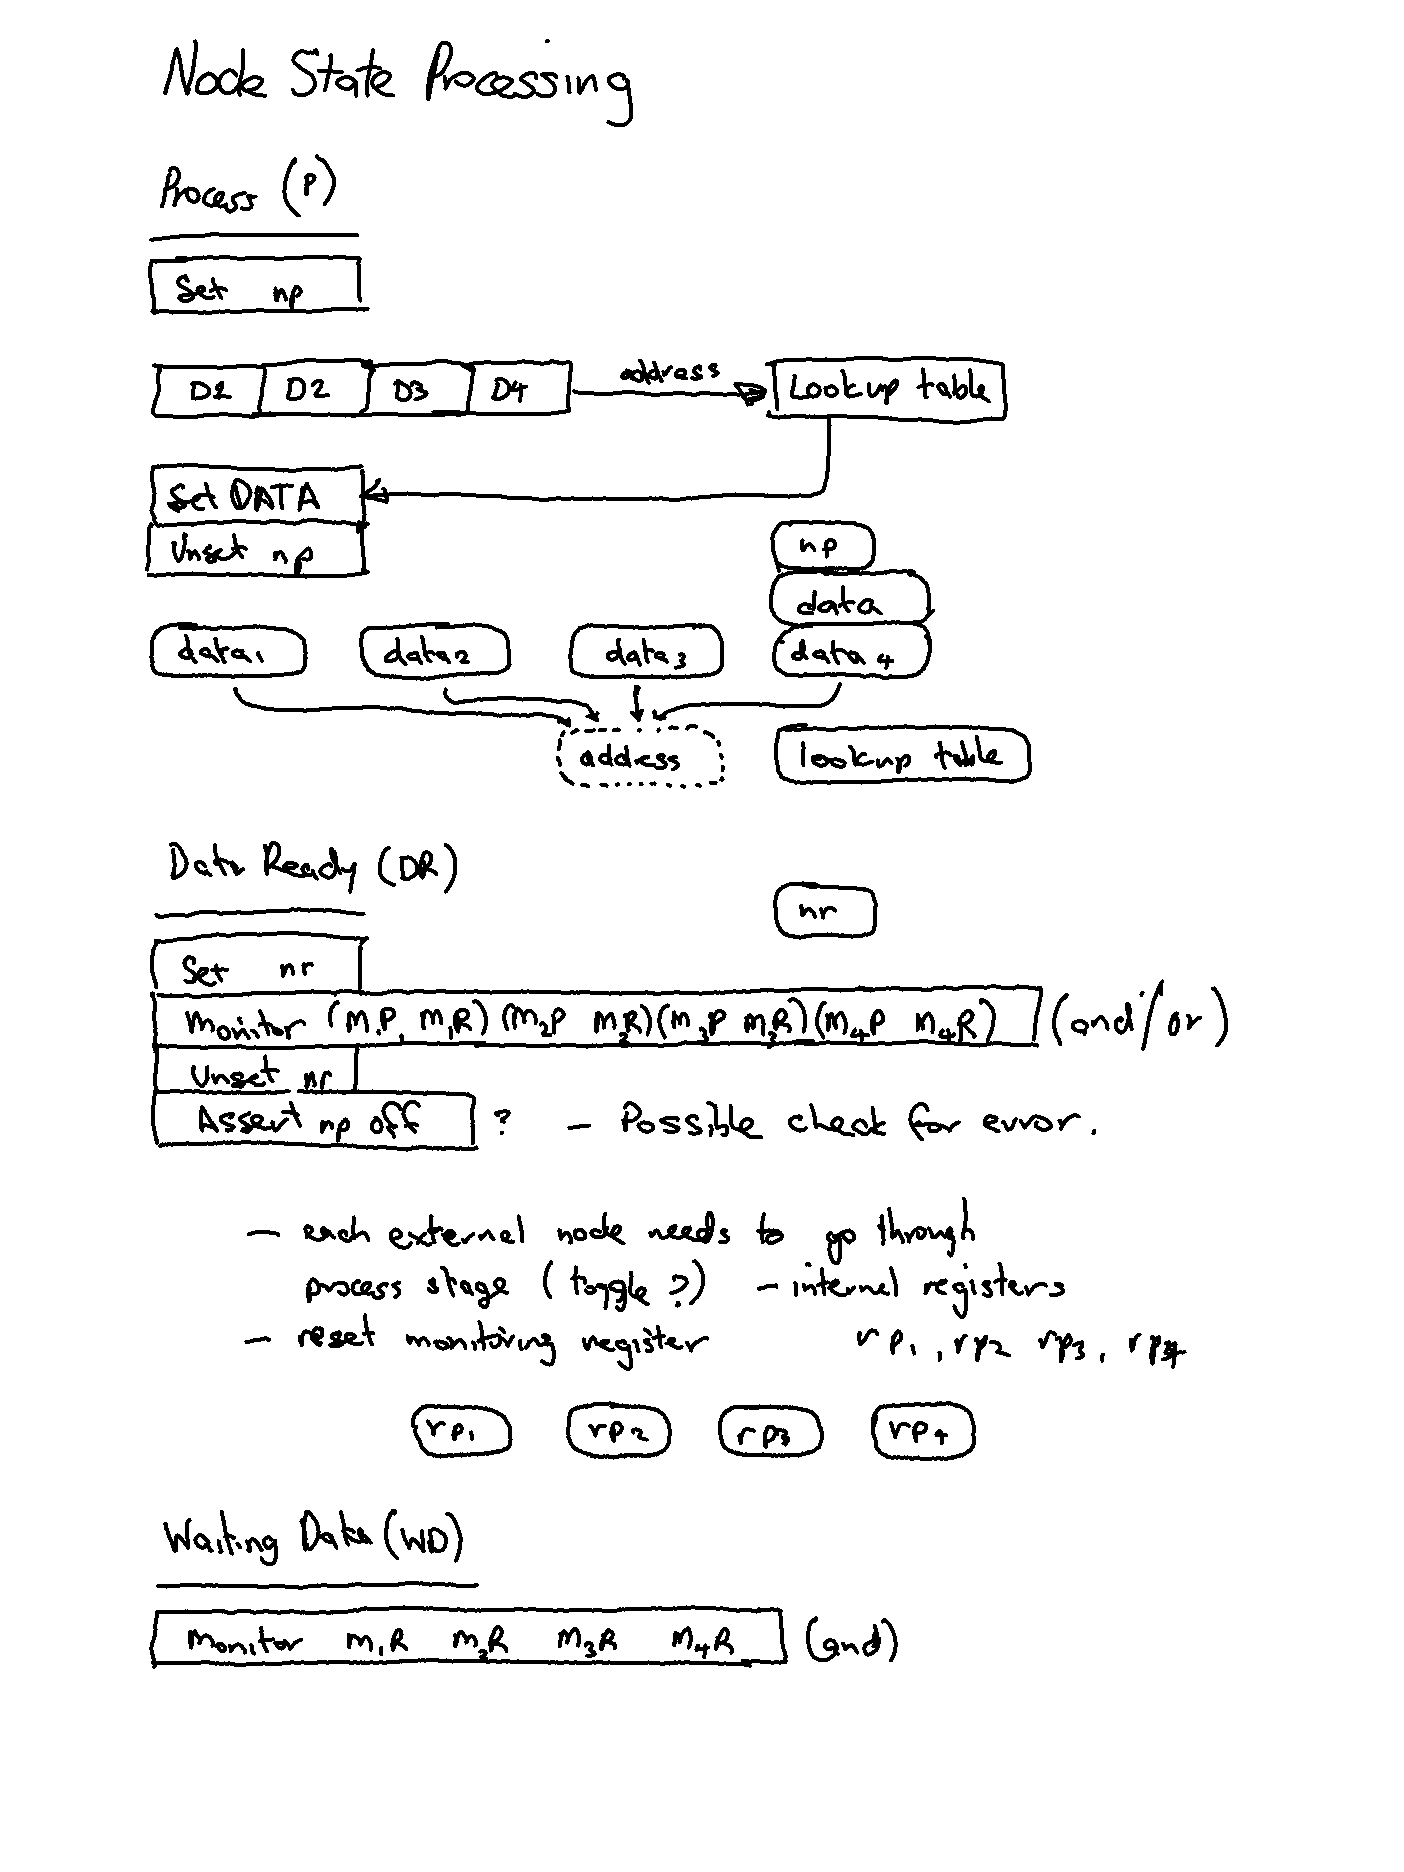 Node State Processing
Process (P)
Set np
D1 D2 D3 D4 address Lookup table
Set DATA
Unset np
np
data
data1 data2 data3 data4
address lookup table
Data Ready (DR)
nr
Set nr
Monitor (M1P, M1R) (M2P M2R) (M3P M3R) (M4P M4R) (and/or)
Unset nr
Assert np off ? - Possible check for error.
- each external node needs to go through
process stage (toggle?) - internal registers
- reset monitoring register rp1, rp2 rp3, rp4
rp1 rp2 rp3 rp4
Waiting Data (WD)
Monitor M1R M2R M3R M4R (and)